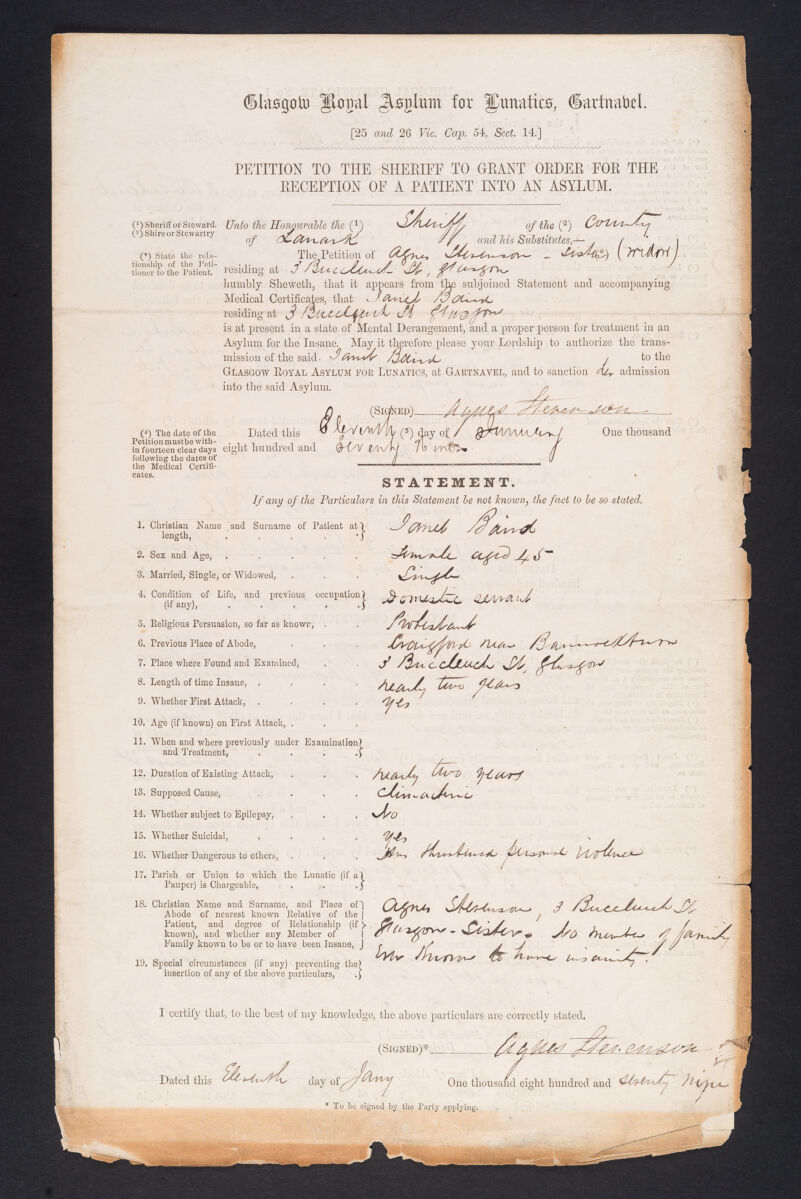 Glasgow Royal Asylum for Lunatics, Gartnavel.
[25 and 26 Vic. Cap. 54, Sect. 14.]
PETITION TO THE SHERIFF TO GRANT ORDER FOR THE
RECEPTION OF A PATIENT INTO AN ASYLUM.
(1) Sheriff or Steward.
(2) Shire or Stewartry
Unto the Honourable the (1) Sheriff of the (2) County
of Lanark and his Substitutes,—
(4) State the rela-
tionship of the Peti-
tioner to the Patient.
The Petition of Agnes Stevenson - Sister (widow)
residing at 3 Buccleuch St, Glasgow
humbly Sheweth, that it appears from the subjoined Statement and accompanying
Medical Certificates, that Janet Baird
residing at 3 Buccleuch St Glasgow
is at present in a state of Mental Derangement, and a proper person for treatment in an
Asylum for the Insane. May it therefore please your Lordship to authorize the trans-
mission of the said Janet Baird to the
GLASGOW ROYAL ASYLUM FOR LUNATICS, at GARTNAVEL, and to sanction her admission
into the said Asylum.
(SIGNED) Agnes Stevenson
(3) The date of the
Petition must be with-
in fourteen clear days
following the dates of
the Medical Certifi-
cates.
Dated this Eleventh (3) day of January One thousand
eight hundred and Seventy Nine
STATEMENT.
If any of the Particulars in this Statement be not known, the fact to be so stated.
1. Christian Name and Surname of Patient at
length, Janet Baird
2. Sex and Age, Female aged 45
3. Married, Single, or Widowed, Single
4. Condition of Life, and previous occupation
(if any), Domestic servant
5. Religious Persuasion, so far as known, Protestant
6. Previous Place of Abode, Craigford near Bannockburn
7. Place where Found and Examined, 3 Buccleuch St, Glasgow
8. Length of time Insane, nearly two years
9. Whether First Attack, Yes
10. Age (if known) on First Attack,
11. When and where previously under Examination
and Treatment,
12. Duration of Existing Attack, nearly two years
13. Supposed Cause, Climacteric
14. Whether subject to Epilepsy, No
15. Whether Suicidal, Yes
16. Whether Dangerous to others, Has threatened personal violence
17. Parish or Union to which the Lunatic (if a
Pauper) is Chargeable,
18. Christian Name and Surname, and Place of
Abode of nearest known Relative of the
Patient, and degree of Relationship (if
known), and whether any Member of
Family known to be or to have been Insane,
Agnes Stevenson, 3 Buccleuch St
Glasgow - Sister. No member of family
ever known to have insanity.
19. Special circumstances (if any) preventing the
insertion of any of the above particulars,
I certify that, to the best of my knowledge, the above particulars are correctly stated.
(SIGNED)* Agnes Stevenson
Dated this Eleventh day of Jany One thousand eight hundred and seventy nine
* To be signed by the Party applying.